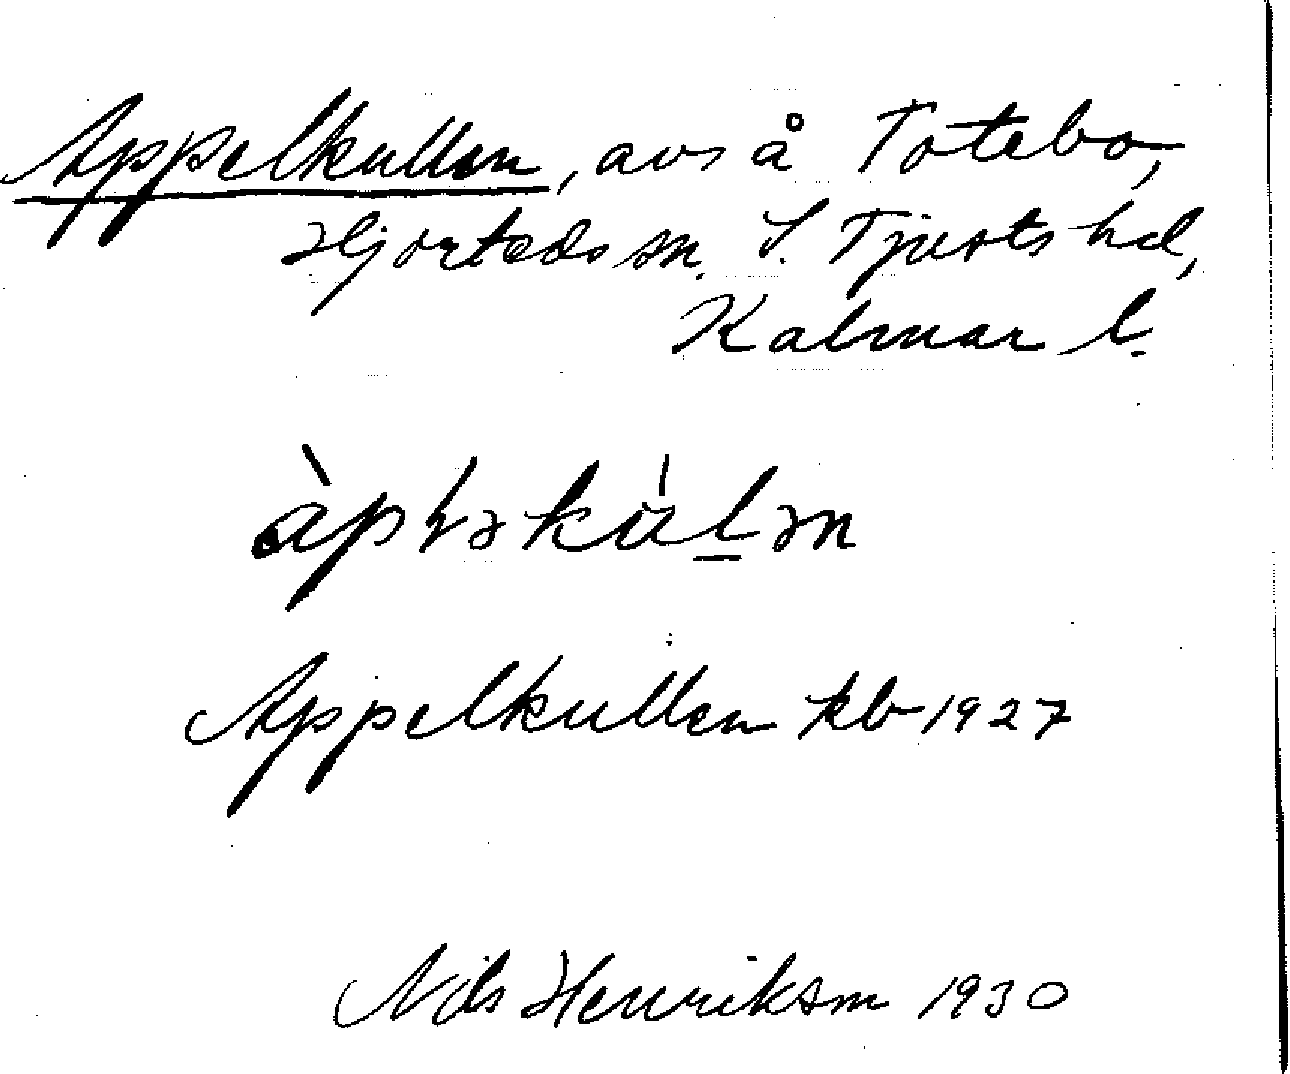 Appelkullen, avs å Totebo,
Hjorteds sn. S. Tjusts hd,
Kalmar l.
àpləkùlən
Appelkullen kb 1927
Nils Henriksson 1930